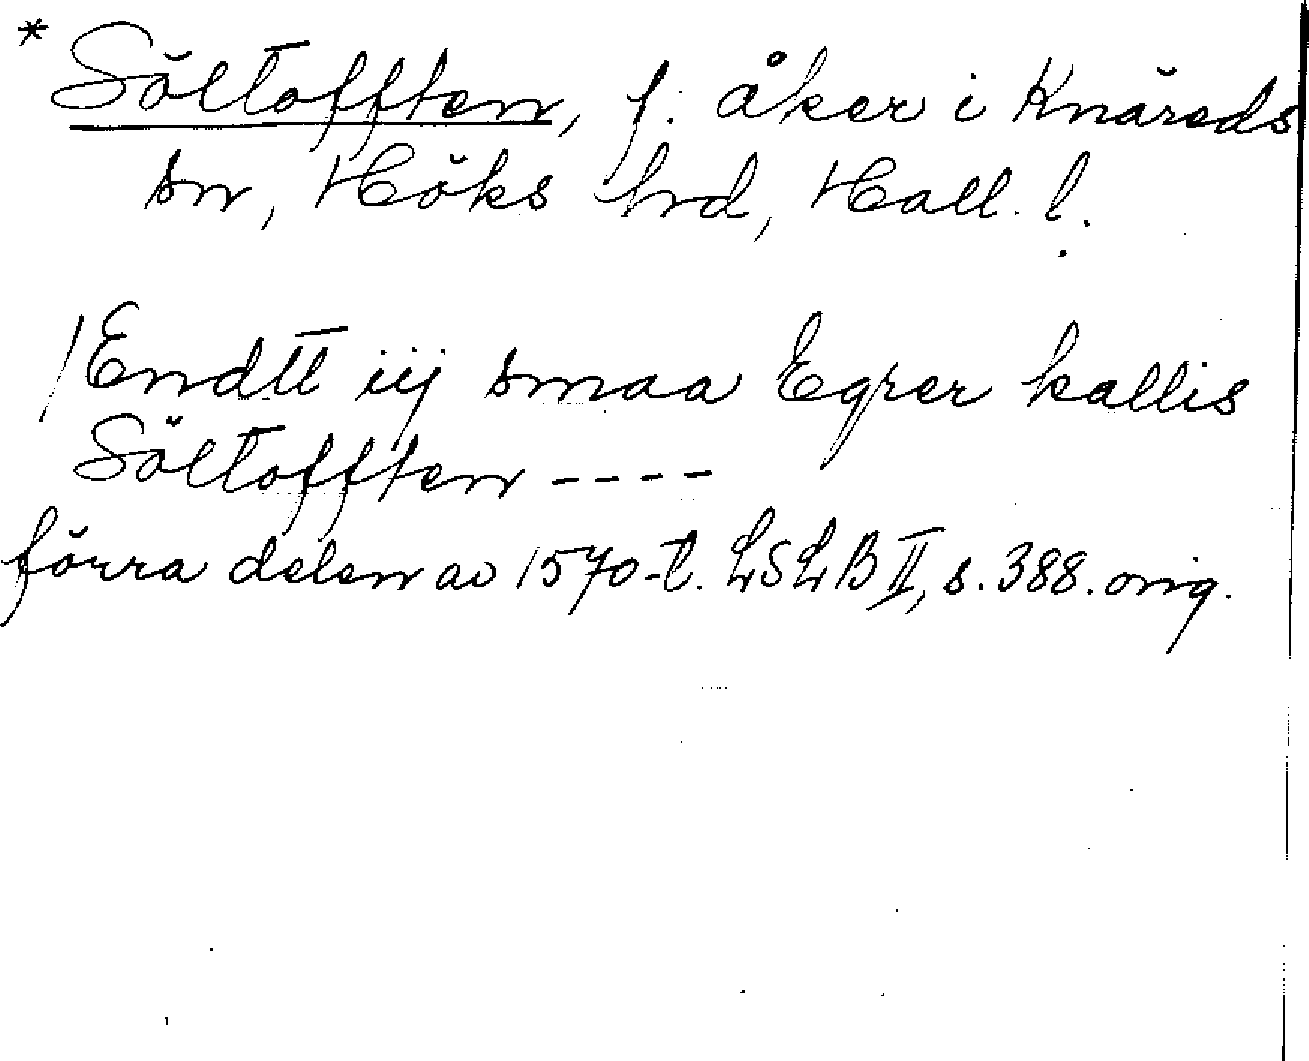 * Söltofften, f. åker i Knäreds
sn, Höks hrd, Hall. l.
/Endtt iij smaa Egrer kallis
Söltofften ----
förra delen av 1570-t. LSLB II, s. 388. orig.